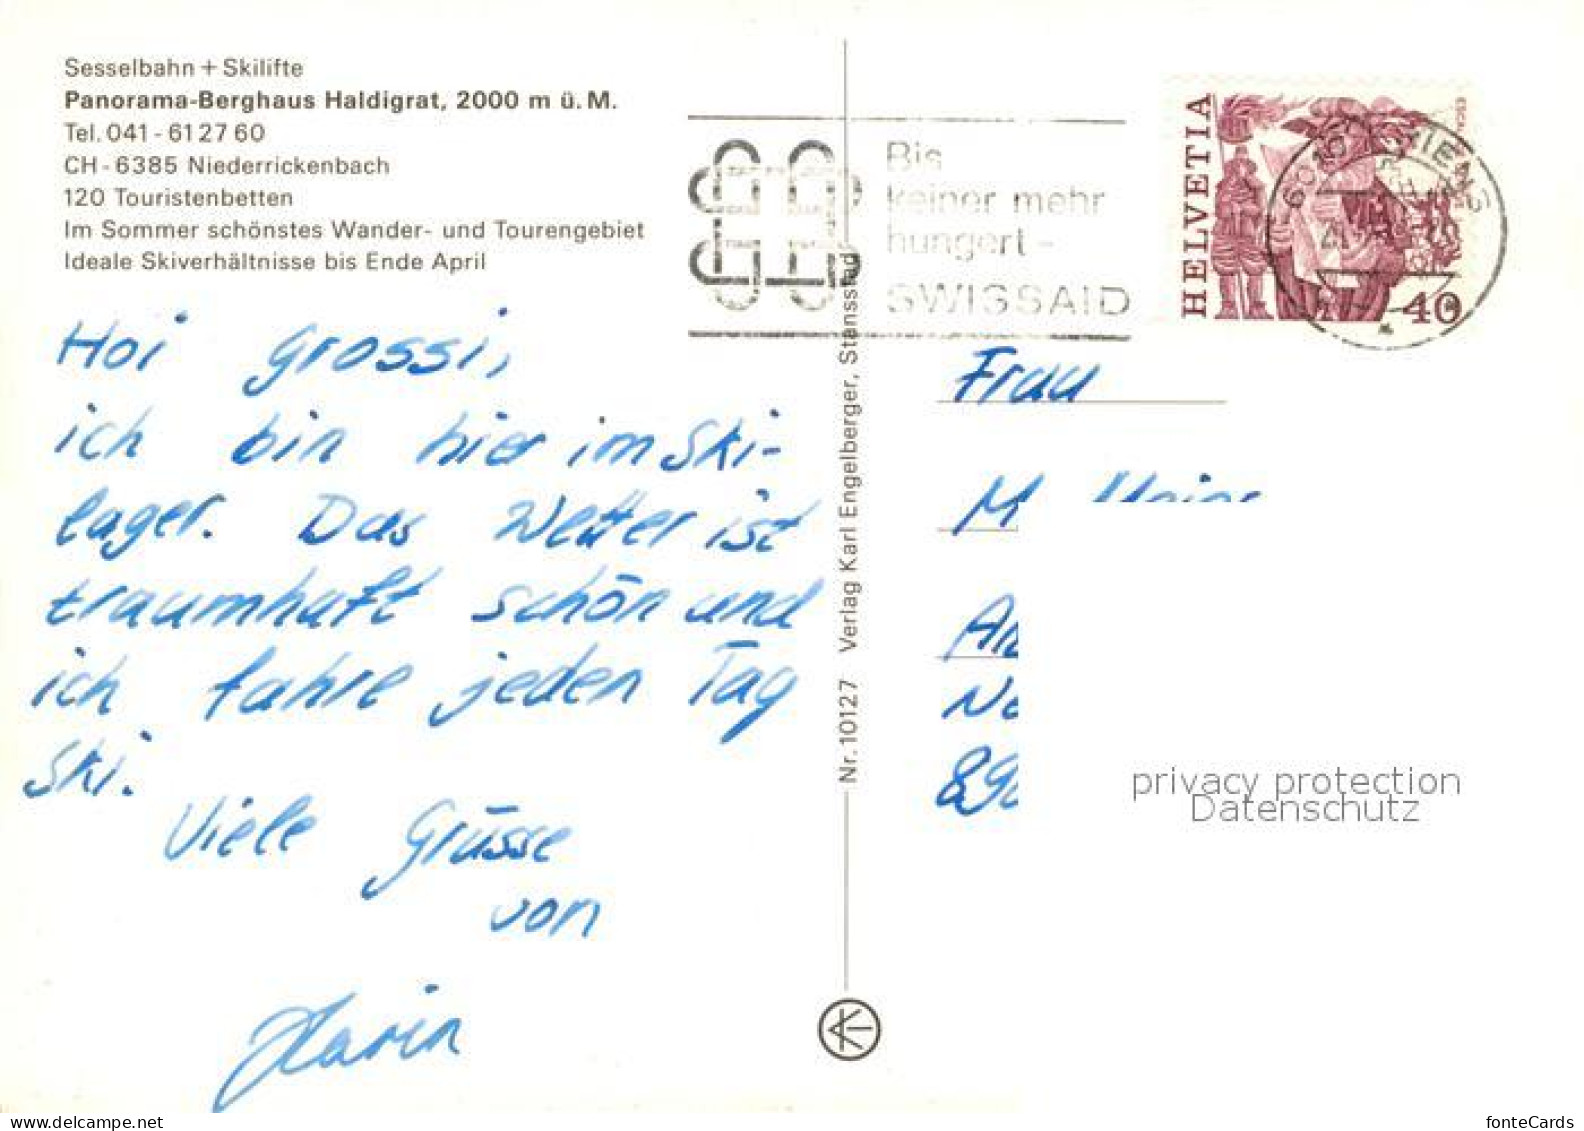 Sesselbahn + Skilifte
Panorama-Berghaus Haldigrat, 2000 m ü. M.
Tel. 041 - 61 27 60
CH - 6385 Niederrickenbach
120 Touristenbetten
Im Sommer schönstes Wander- und Tourengebiet
Ideale Skiverhältnisse bis Ende April
Hoi Grossi,
ich bin hier im Ski-
lager. Das Wetter ist
traumhaft schön und
ich fahre jeden Tag
Ski.
Viele Grüsse
von
Karin
Nr. 10127 Verlag Karl Engelberger, Stansstad
Bis
keiner mehr
hungert -
SWISSAID
HELVETIA
40
6010 KRIENS
Frau
M
privacy protection
Datenschutz
www.delcampe.net
fonteCards